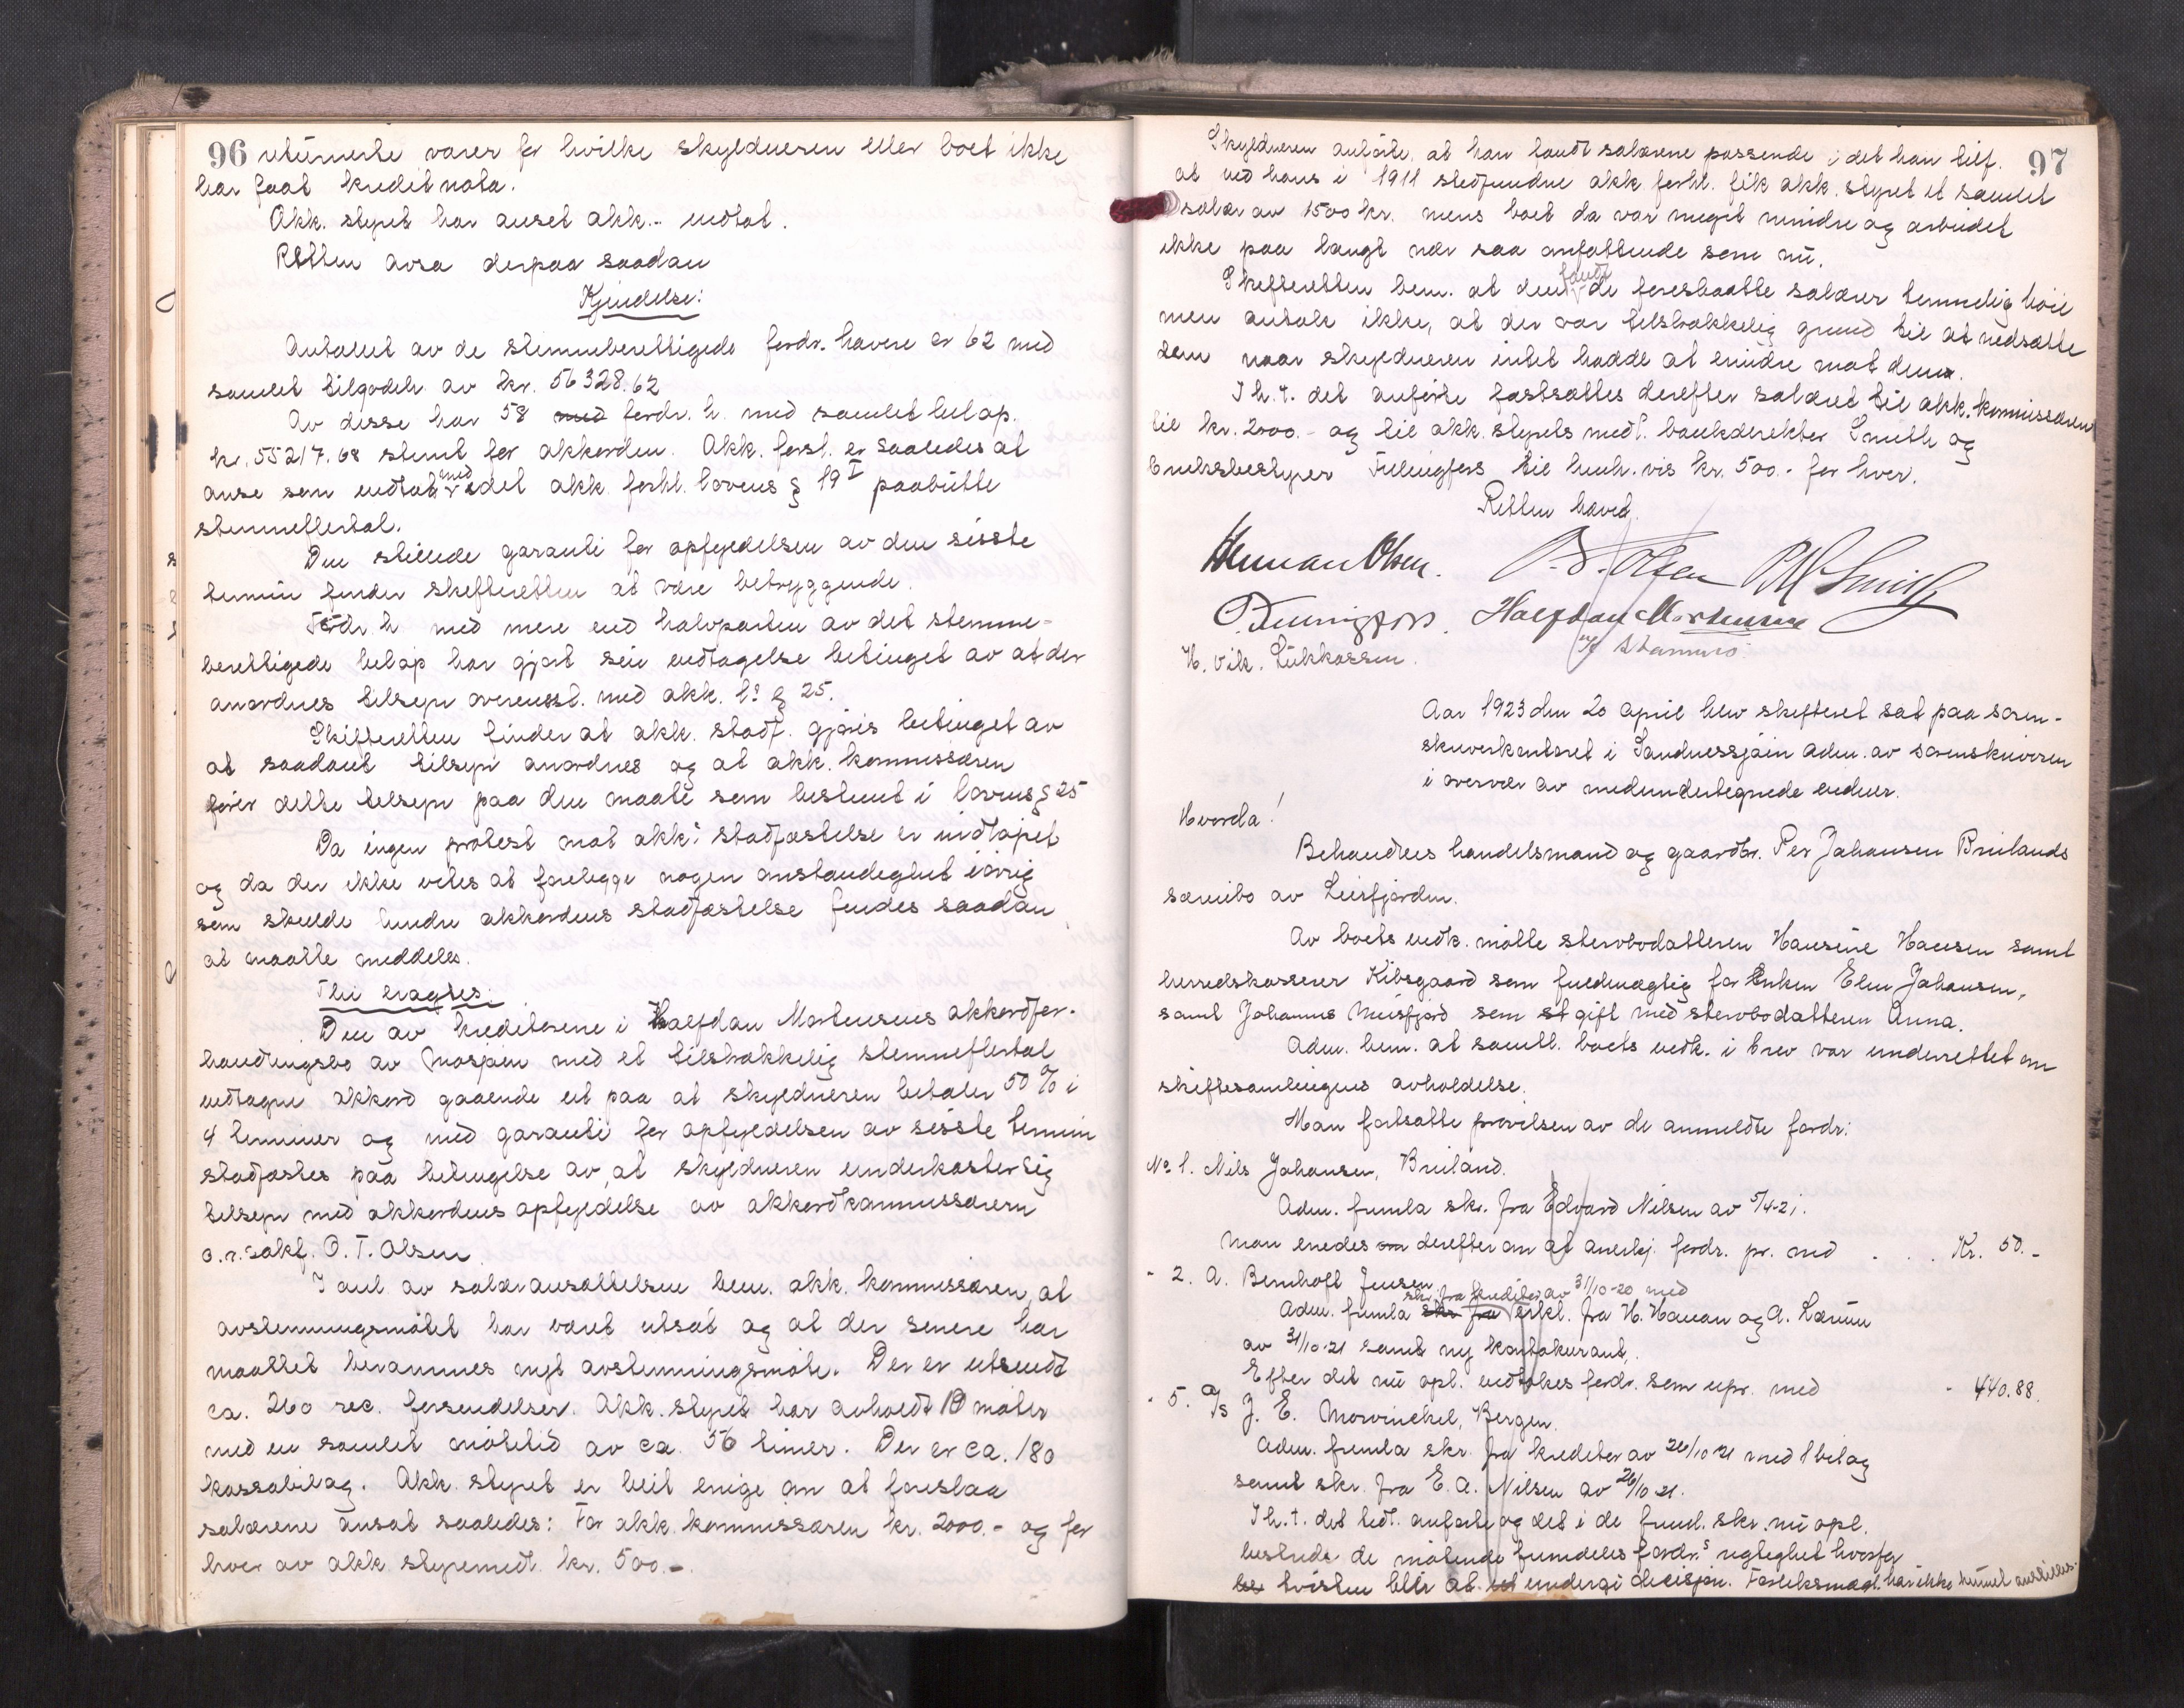 96 returnerte varer for hvilke skyldneren eller boet ikke
har faat kreditnota.
Akk. styret har anset akk.- vedtat.
Retten avsa derpaa saadan
Kjendelse:
Antallet av de stemmeberettigede fordr. havere er 62 med
samlet tilgodeh. av kr. 56328.62
Av disse har 58 med fordr. h. med samlet beløp.
kr. 55217.68 stemt for akkorden. Akk. forsl. er saaledes at
anse som vedtat med det akk. forhl. lovens § 19 I paabudte
stemmeflertal.
Den stillede garanti for opfyldelsen av den sisste
termin finder skifteretten at være betryggende.
Fordr. h med mere end halvparten av det stemme-
berettigede beløp har gjort sin vedtagelse betinget av at der
anordnes tilsyn overensst. med akk. l's § 25.
Skifteretten finder at akk. stadf. gjøres betinget av
at saadant tilsyn anordnes og at akk. kommissæren
fører dette tilsyn paa den maate som bestemt i lovens § 25
Da ingen protest mot akk's stadfæstelse er indløpet
og da der ikke vites at foreligge nogen omstændighet iøvrig
som skulde hindre akkordens stadfæstelse findes saadan
at maatte meddeles.
Thi eragtes:
Den av kreditorene i Halfdan Mortensens akkordfor-
handlingsbo av Mosjøen med et tilstrækkelig stemmeflertal
vedtagne akkord gaaende ut paa at skyldneren betaler 50 % i
4 terminer og med garanti for opfyldelsen av sisste termin
stadfæstes paa betingelse av, at skyldneren underkaster sig
tilsyn med akkordens opfyldelse av akkordkommissæren
o.r.sakf. O. T. Olsen
I anl. av salæransættelsen bem. akk. kommissæren, at
avstemningsmøtet har været utsat og at der senere har
maattet berammes nyt avstemningsmøte. Der er utsendt
ca. 260 rec. forsendelser. Akk. styret har avholdt 19 møter
med en samlet møtetid av ca. 56 timer. Der er ca. 180
kassabilag. Akk. styret er blit enige om at foreslaa
salærene ansat saaledes: For akk. kommissæren kr. 2000.- og for
hver av akk. styremedl. kr. 500.-
97
Skyldneren anførte, at han fandt salærene passende idet han tilf.
at ved hans i 1911 stedfundne akk. forhl. fik akk. styret et samlet
salær av 1500 kr. mens boet da var meget mindre og arbeidet
ikke paa langt nær saa omfattende som nu.
Skifteretten bem. at den fandt de foreslaatte salærer temmelig høie
men antok ikke, at der var tilstrækkelig grund til at nedsætte
dem naar skyldneren intet hadde at erindre mot dem.
I h. t. det anførte fastsættes derefter salæret til akk. kommissæren
til kr. 2000.- og til akk. styrets medl. bankdirektør Smith og
bruksbestyrer til henh. vis kr. 500.- for hver.
Retten hævet.
Herman Olsen. O. T. Olsen Smith
Halfdan Mortensen
H. Vik. Lukkassen.
Aar 1923 den 20 april blev skifteret sat paa soren-
skriverkontoret i Sandnessjøen adm. av sorenskriveren
i overvær av medundertegnede vidner.
Hvorda!
Behandles handelsmand og gaardbr. Per Johansen Bruilands
særeibo av Leirfjorden.
Av boets vedk. møtte stervbodatteren Hansine Hansen samt
herredskasserer Kibsgaard som fuldmægtig for Enken Elen Johansen,
samt Johannes Meisfjord som st gift med stervbodatteren Anna.
Adm. bem. at samtl. boets vedk. i brev var underrettet om
skiftesamlingens avholdelse.
Man fortsatte prøvelsen av de anmeldte fordr:
No 1. Nils Johansen, Bruiland.
Adm. fremla skr. fra Edvard Nilsen av 5/4-21.
Man enedes om derefter om at anerkj. fordr. pr. med . . . Kr. 50.-
- 2. A. Bernhoft Jensen
skr. fra kreditor av 31/10-20 med
Adm. fremla skr fra erkl. fra H. Hanan og A. Lærum
av 31/10-21 samt ny kontokurant.
Efter det nu opl. vedtokes fordr. som upr. med - 440.88.
- 5. A/S J. E. Mowinckel, Bergen.
Adm. fremla skr. fra kreditor av 26/10 21 med 1 bilag
samt skr. fra E. A. Nilsen av 26/10 21.
I h. t. det tidl. anførte og det i de freml. skr. nu opl.
bestreds de møtende fremdeles fordr.s rigtighet hvorfor
tvisten blir at undergi decisjon. Forliksmægl. har ikke kunnet anstilles.